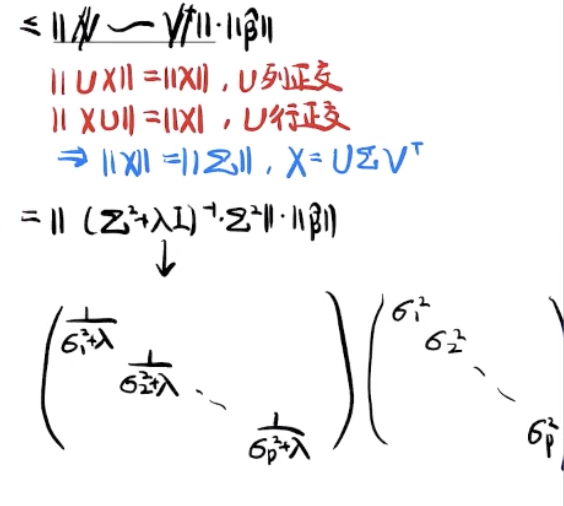 ≤ ||V ~ Vᵀ||·||β̂||
||UX|| = ||X||, U列正交
||XU|| = ||X|, U行正交
⇒ ||X|| = ||Σ||, X = UΣVᵀ
= || (Σ²+λI)⁻¹·Σ²||·||β̂||
↓
1/(σ₁²+λ) σ₁²
1/(σ₂²+λ) σ₂²
⋱ ⋱
1/(σₚ²+λ) σₚ²